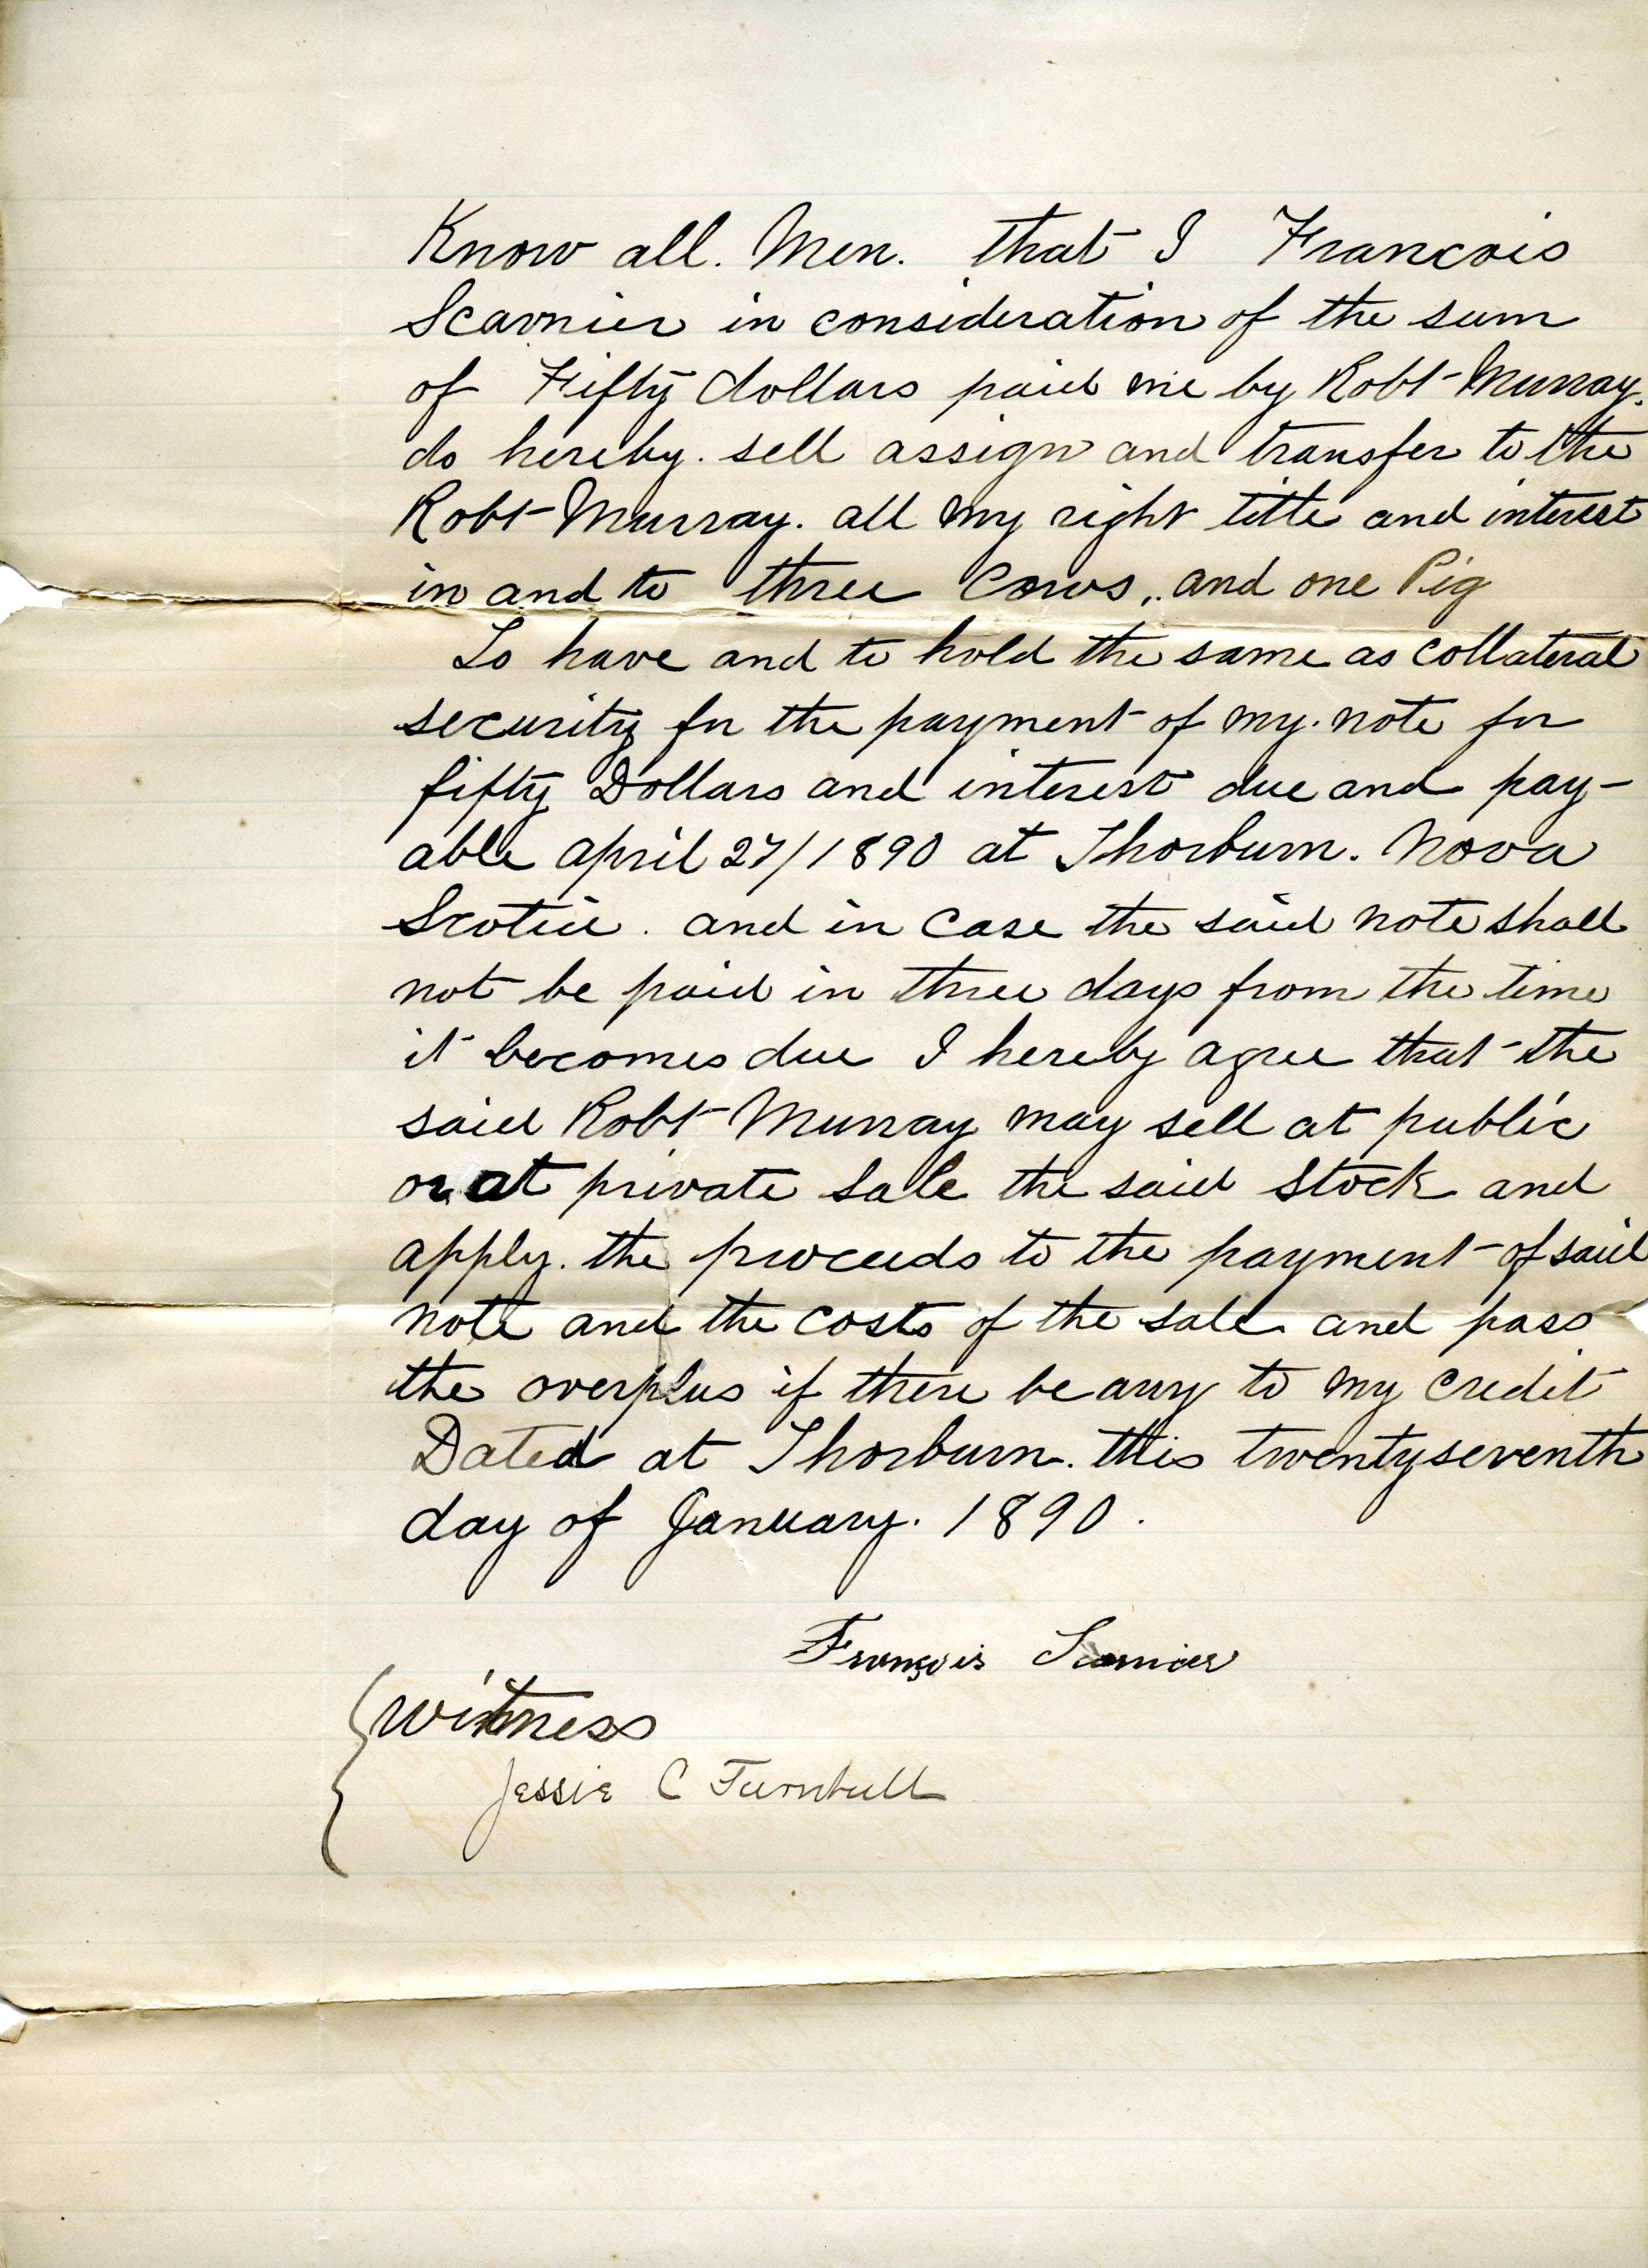 Know all. Men. that I Francois
Scarnier in consideration of the sum
of Fifty dollars paid me by Robt Murray.
do hereby. sell assign and transfer to the
Robt Murray. all my right title and interest
in and to three Cows, and one Pig
To have and to hold the same as collateral
security for the payment of my note for
fifty Dollars and interest due and pay-
able april 27/1890 at Thorburn. Nova
Scotia. and in case the said note shall
not be paid in three days from the time
it becomes due I hereby agree that the
said Robt Murray may sell at public
or at private sale the said stock and
apply. the proceeds to the payment of said
note and the costs of the sale and pass
the overplus if there be any to my credit
Dated at Thorburn. this twentyseventh
day of January. 1890.
François Scarnier
Witness
Jessie C Turnbull